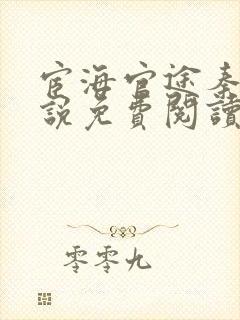 宦海官途秦
說免費閱讀
零零九